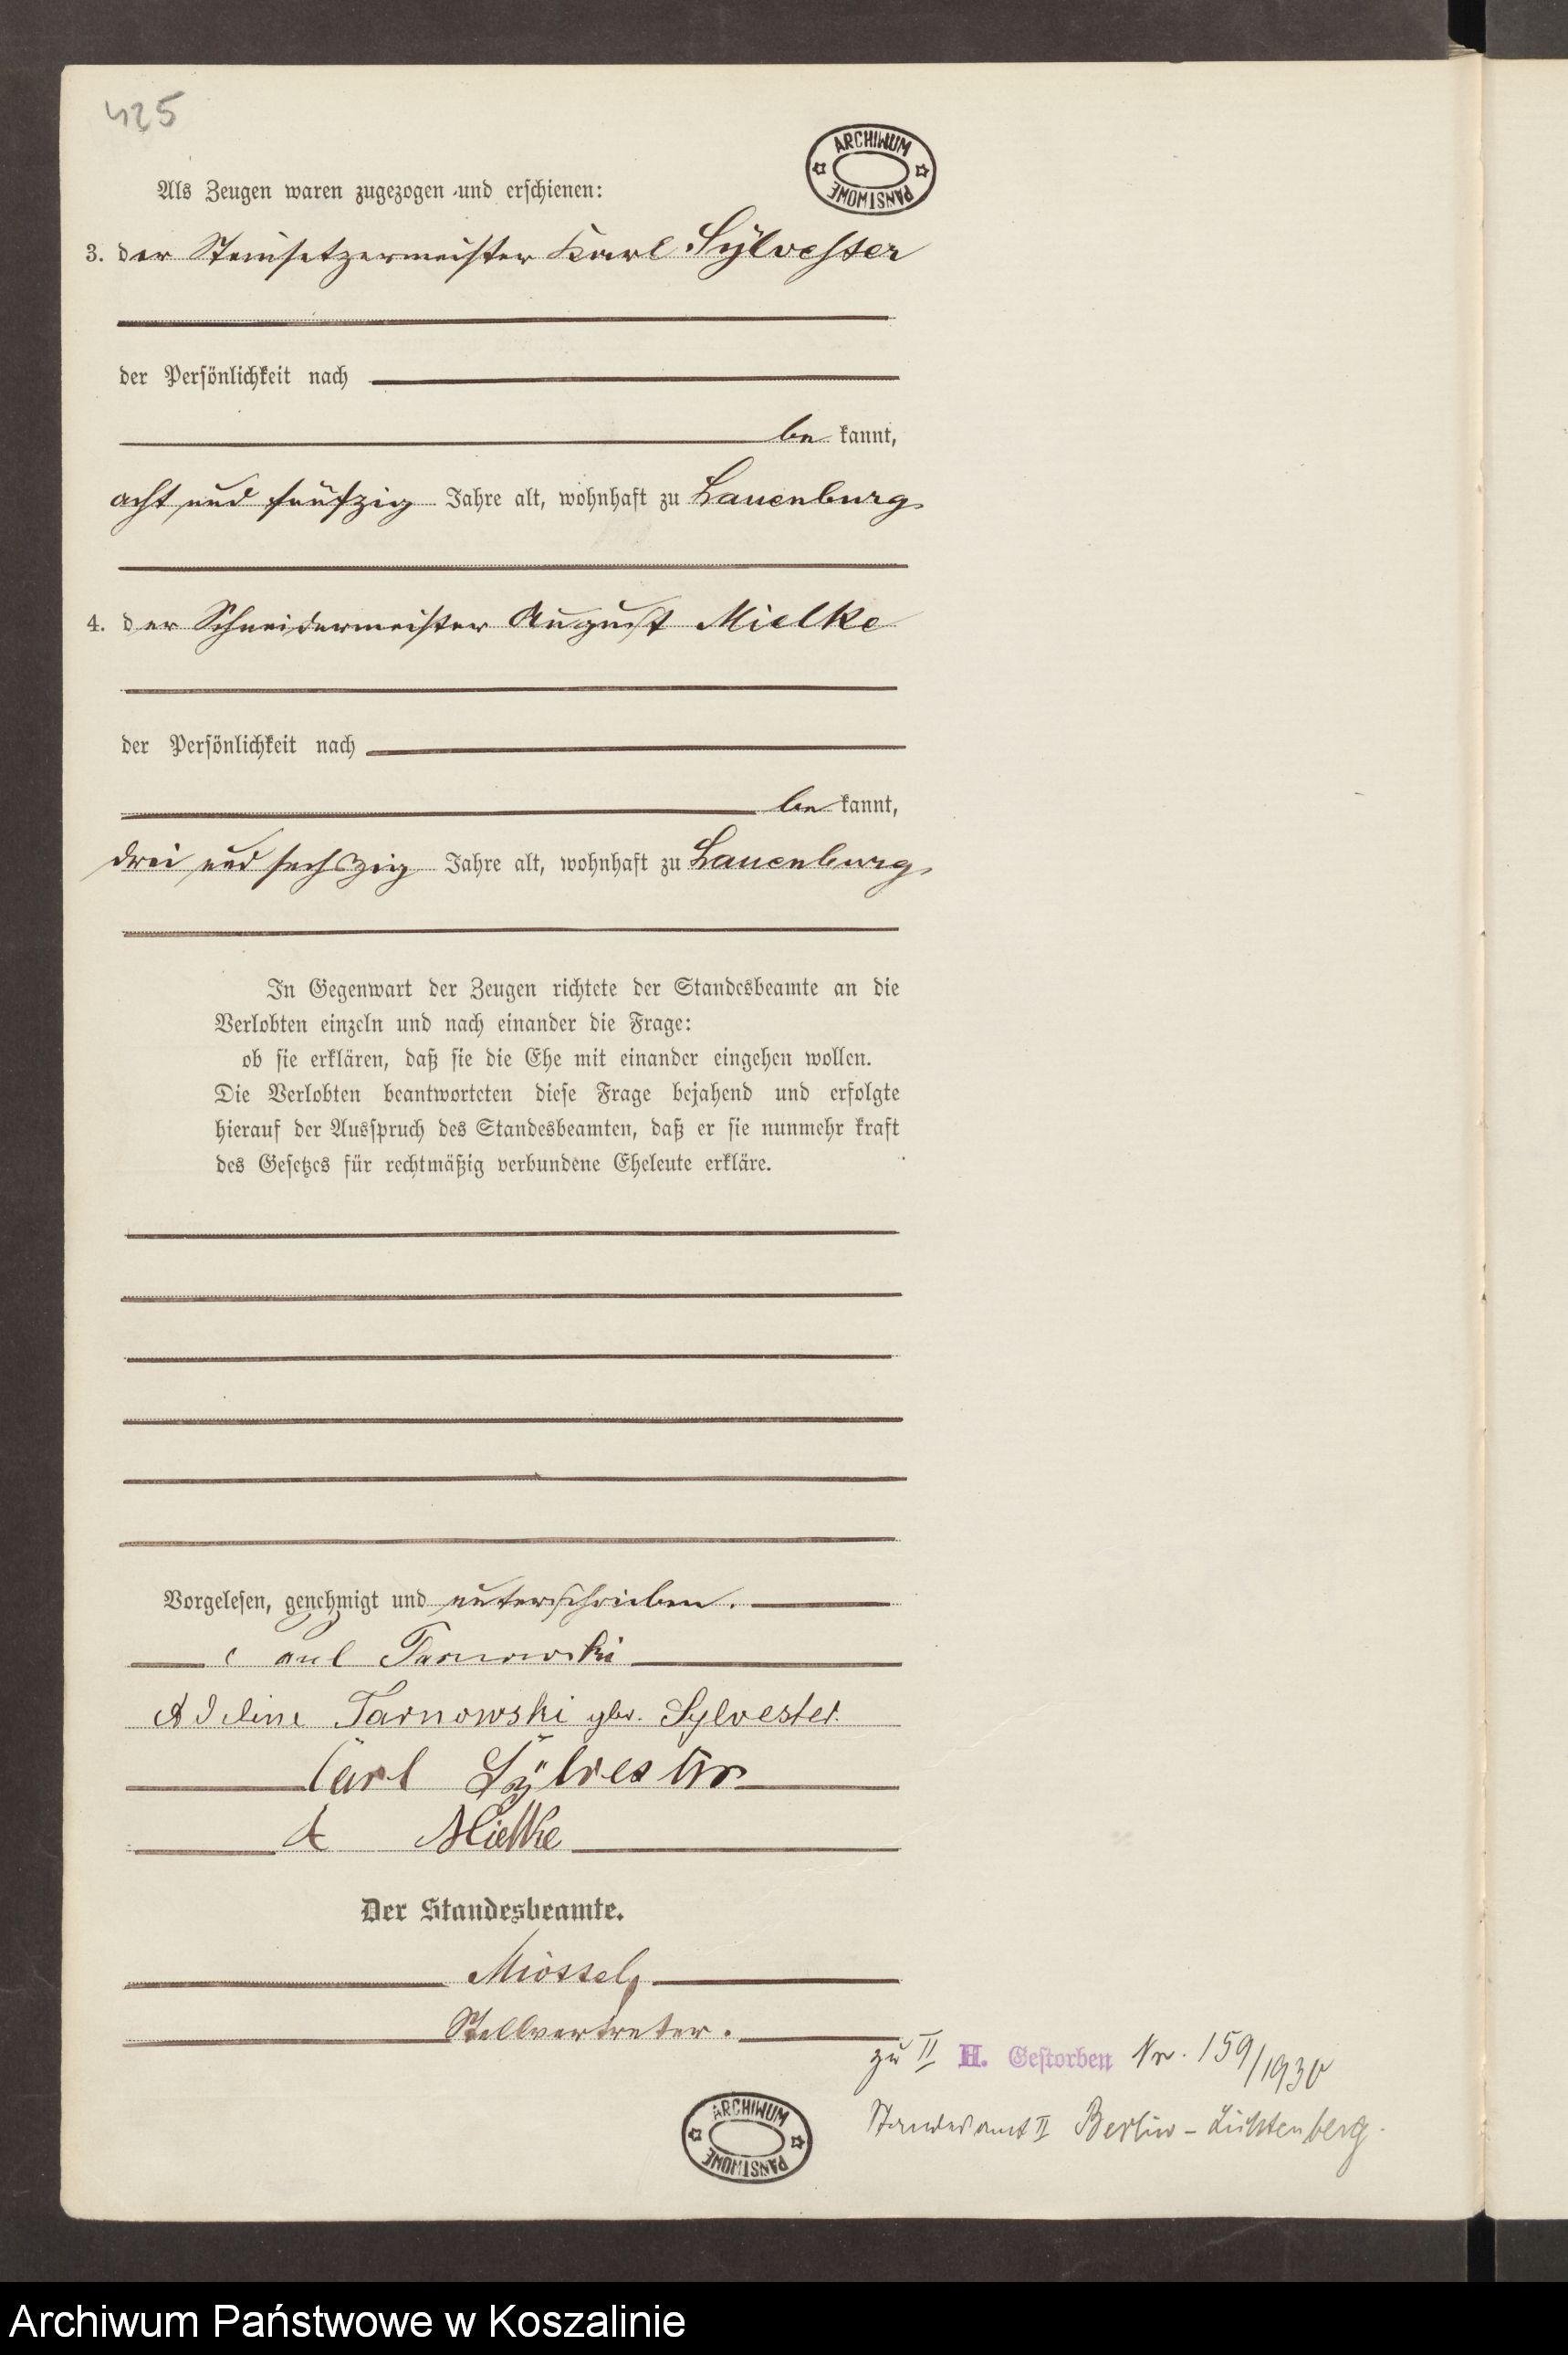 425
ARCHIWUM PAŃSTWOWE
Als Zeugen waren zugezogen und erschienen:
3. der Steinsetzermeister Karl Sylvester
der Persönlichkeit nach
be kannt,
acht und fünfzig Jahre alt, wohnhaft zu Lauenburg
4. der Schneidermeister August Mielke
der Persönlichkeit nach
be kannt,
drei und sechszig Jahre alt, wohnhaft zu Lauenburg
In Gegenwart der Zeugen richtete der Standesbeamte an die
Verlobten einzeln und nach einander die Frage:
ob sie erklären, daß sie die Ehe mit einander eingehen wollen.
Die Verlobten beantworteten diese Frage bejahend und erfolgte
hierauf der Ausspruch des Standesbeamten, daß er sie nunmehr kraft
des Gesetzes für rechtmäßig verbundene Eheleute erkläre.
Vorgelesen, genehmigt und unterschrieben.
Paul Tarnowski
Adeline Tarnowski geb. Sylvester.
Carl Sylvester
A Mielke
Der Standesbeamte.
Stellvertreter.
zu II H. Gestorben Nr. 159/1930
Standesamt II Berlin-Lichtenberg.
ARCHIWUM PAŃSTWOWE
Archiwum Państwowe w Koszalinie